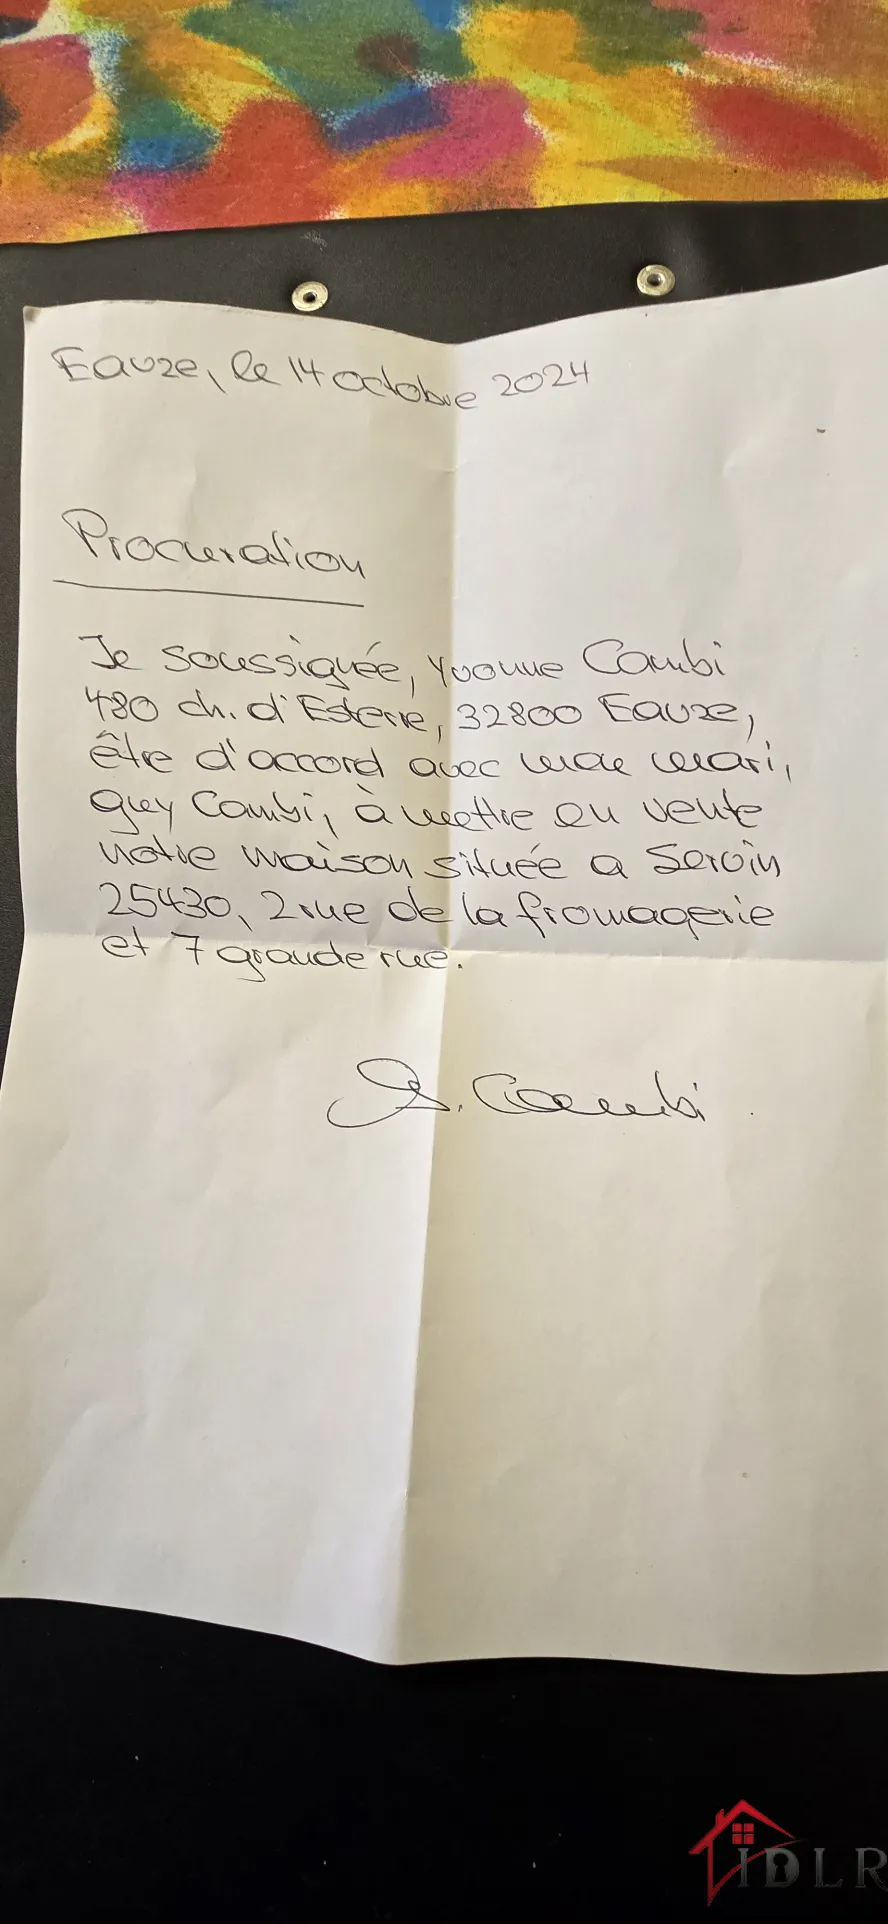 Eauze, le 14 octobre 2024
Procuration
Je soussignée, Yvonne Cambi
480 ch. d'Esterre, 32800 Eauze,
être d'accord avec mon mari,
Guy Cambi, à mettre en vente
notre maison située a Servin
25430, 2 rue de la fromagerie
et 7 grande rue.
Cambi
IDLR